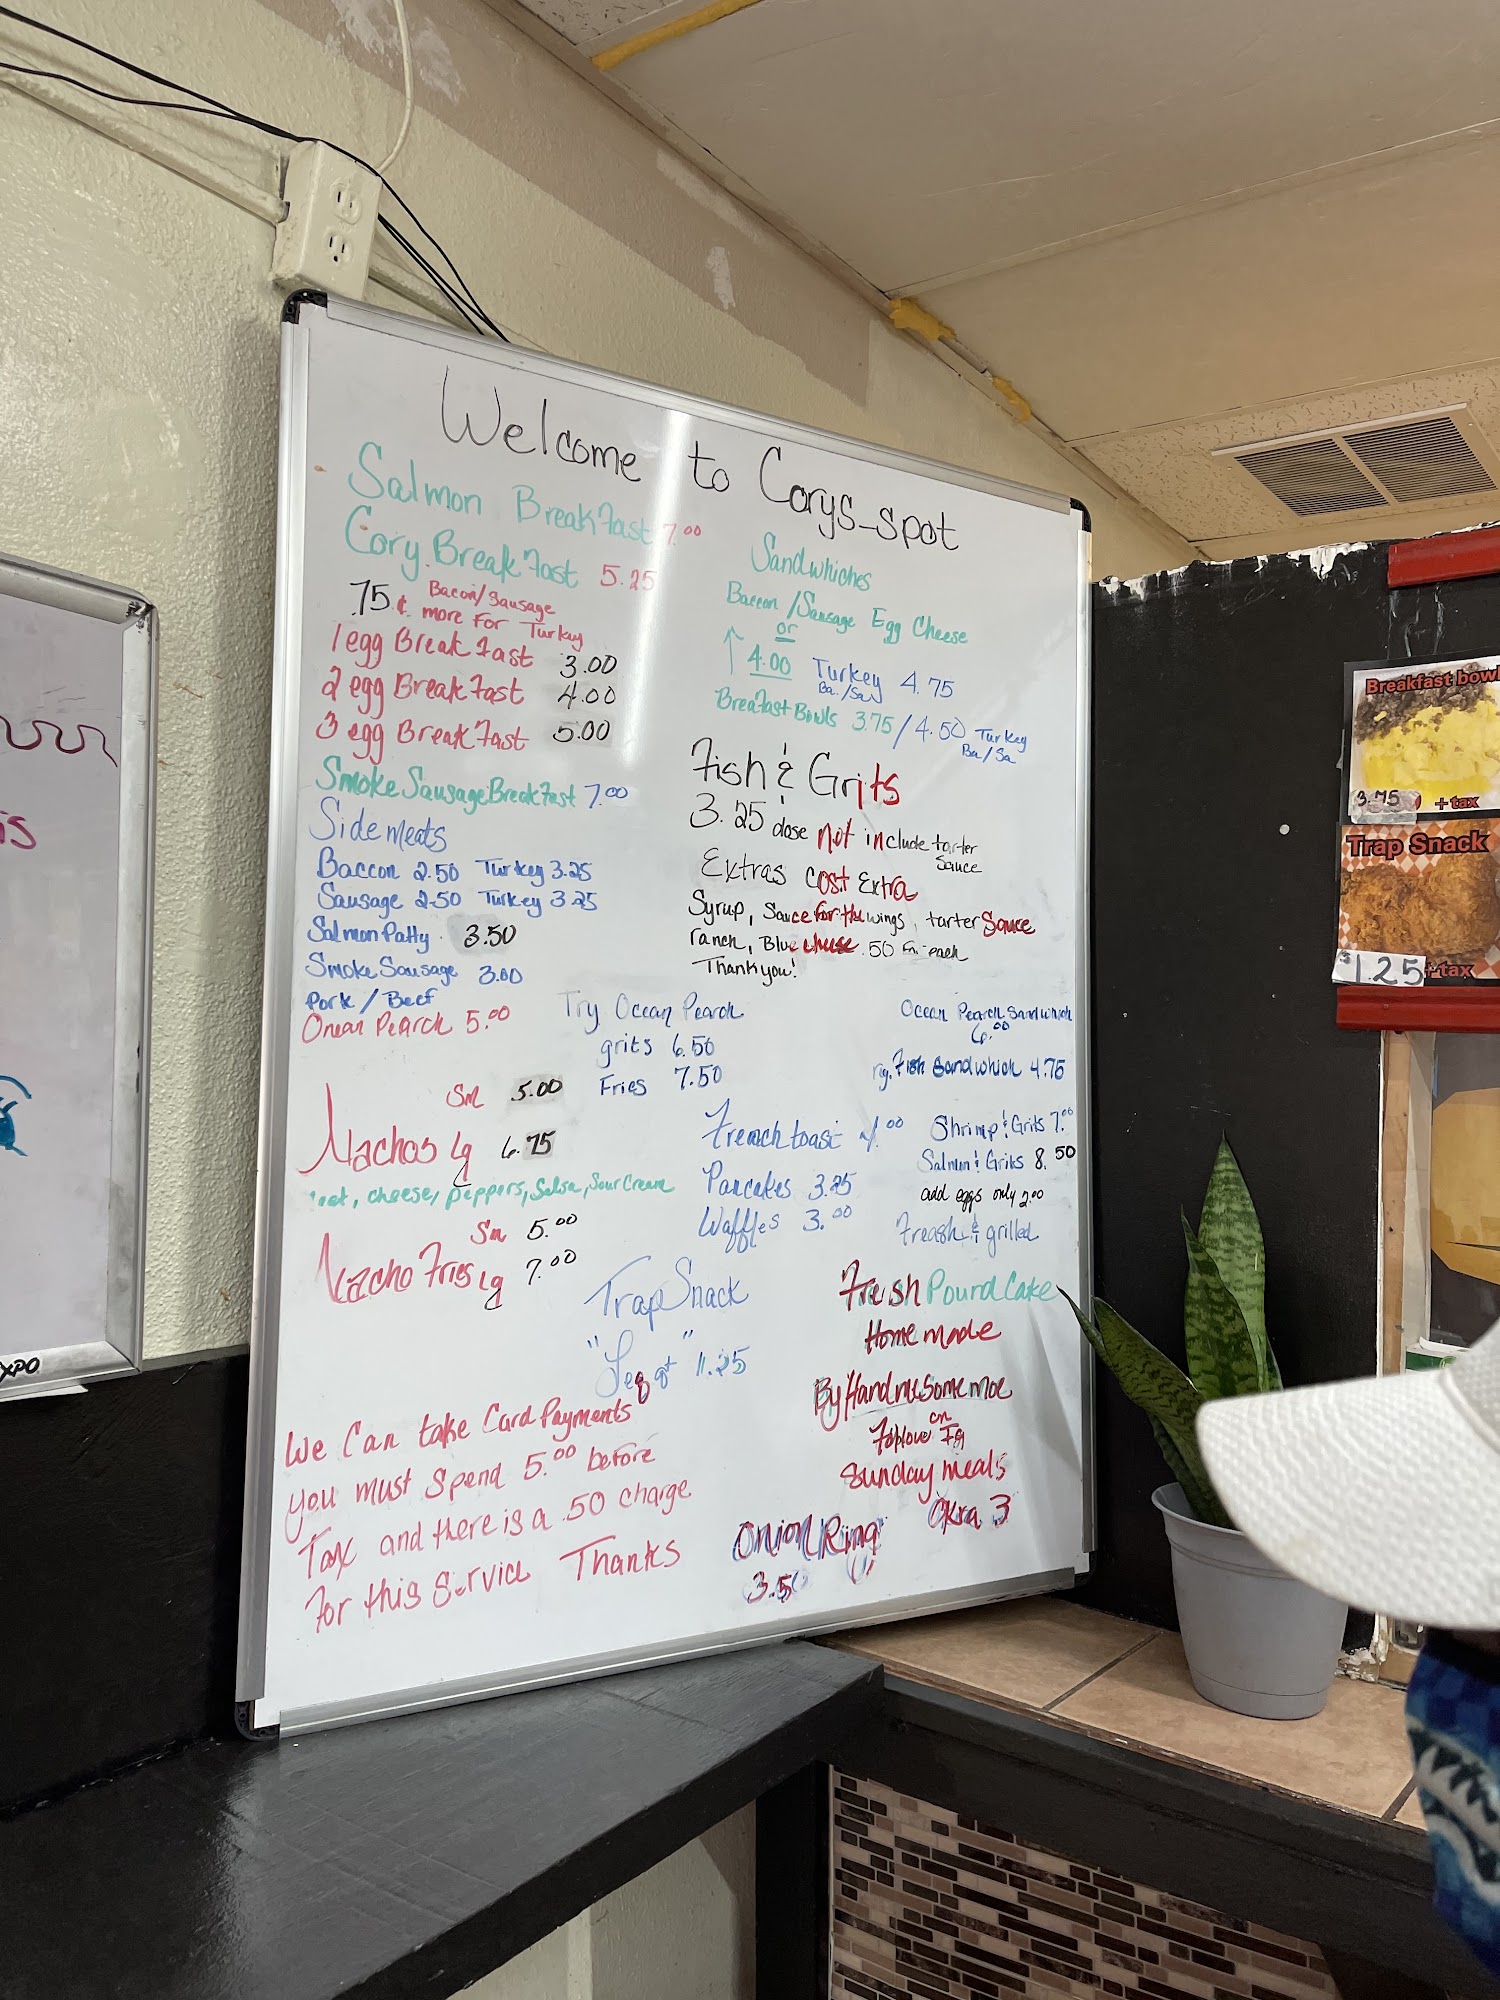 Welcome to Corys-spot
Salmon Breakfast 7.00
Cory Breakfast 5.25
75¢ Bacon/Sausage
more For Turkey
1 egg Breakfast 3.00
2 egg Breakfast 4.00
3 egg Breakfast 5.00
Smoke Sausage Breakfast 7.00
Side meats
Baccon 2.50 Turkey 3.25
Sausage 2.50 Turkey 3.25
Salmon Patty 3.50
Smoke Sausage 3.00
Pork / Beef
Pearch 5.00
Sandwhiches
Baccon /Sausage Egg Cheese
or
4.00 Turkey 4.75
Ba./Sau
Breafast Bowls 3.75 / 4.50 Turkey
Ba/Sa
Fish & Grits
3.25 dose not include tarter
Sauce
Extras cost Extra
Syrup, Sauce for the wings, tarter Sauce
ranch, Blue cheese .50 each
Thank you!
Try Ocean Pearch
grits 6.50
Fries 7.50
Ocean Pearch Sandwhich
6.00
rg. Fish Sandwhich 4.75
Sm 5.00
Nachos lg 6.75
cheese, peppers, Salsa, Sour Cream
Sm 5.00
Nacho Fries lg 7.00
French toast 4.00
Pancakes 3.25
Waffles 3.00
Shrimp & Grits 7.00
Salmon & Grits 8.50
add eggs only 2.00
Freash & grilled
Trap Snack
"Leg qt" 1.25
Fresh Pound Cake
Home made
By Handmesomemoe
on
Follow Ig
Sunday meals
Okra 3
Onion Ring
3.50
We Can take Card Payments
you must spend 5.00 before
Tax and there is a .50 charge
For this Service Thanks
Breakfast bowl
3.75 + tax
Trap Snack
$1.25 + tax
EXPO